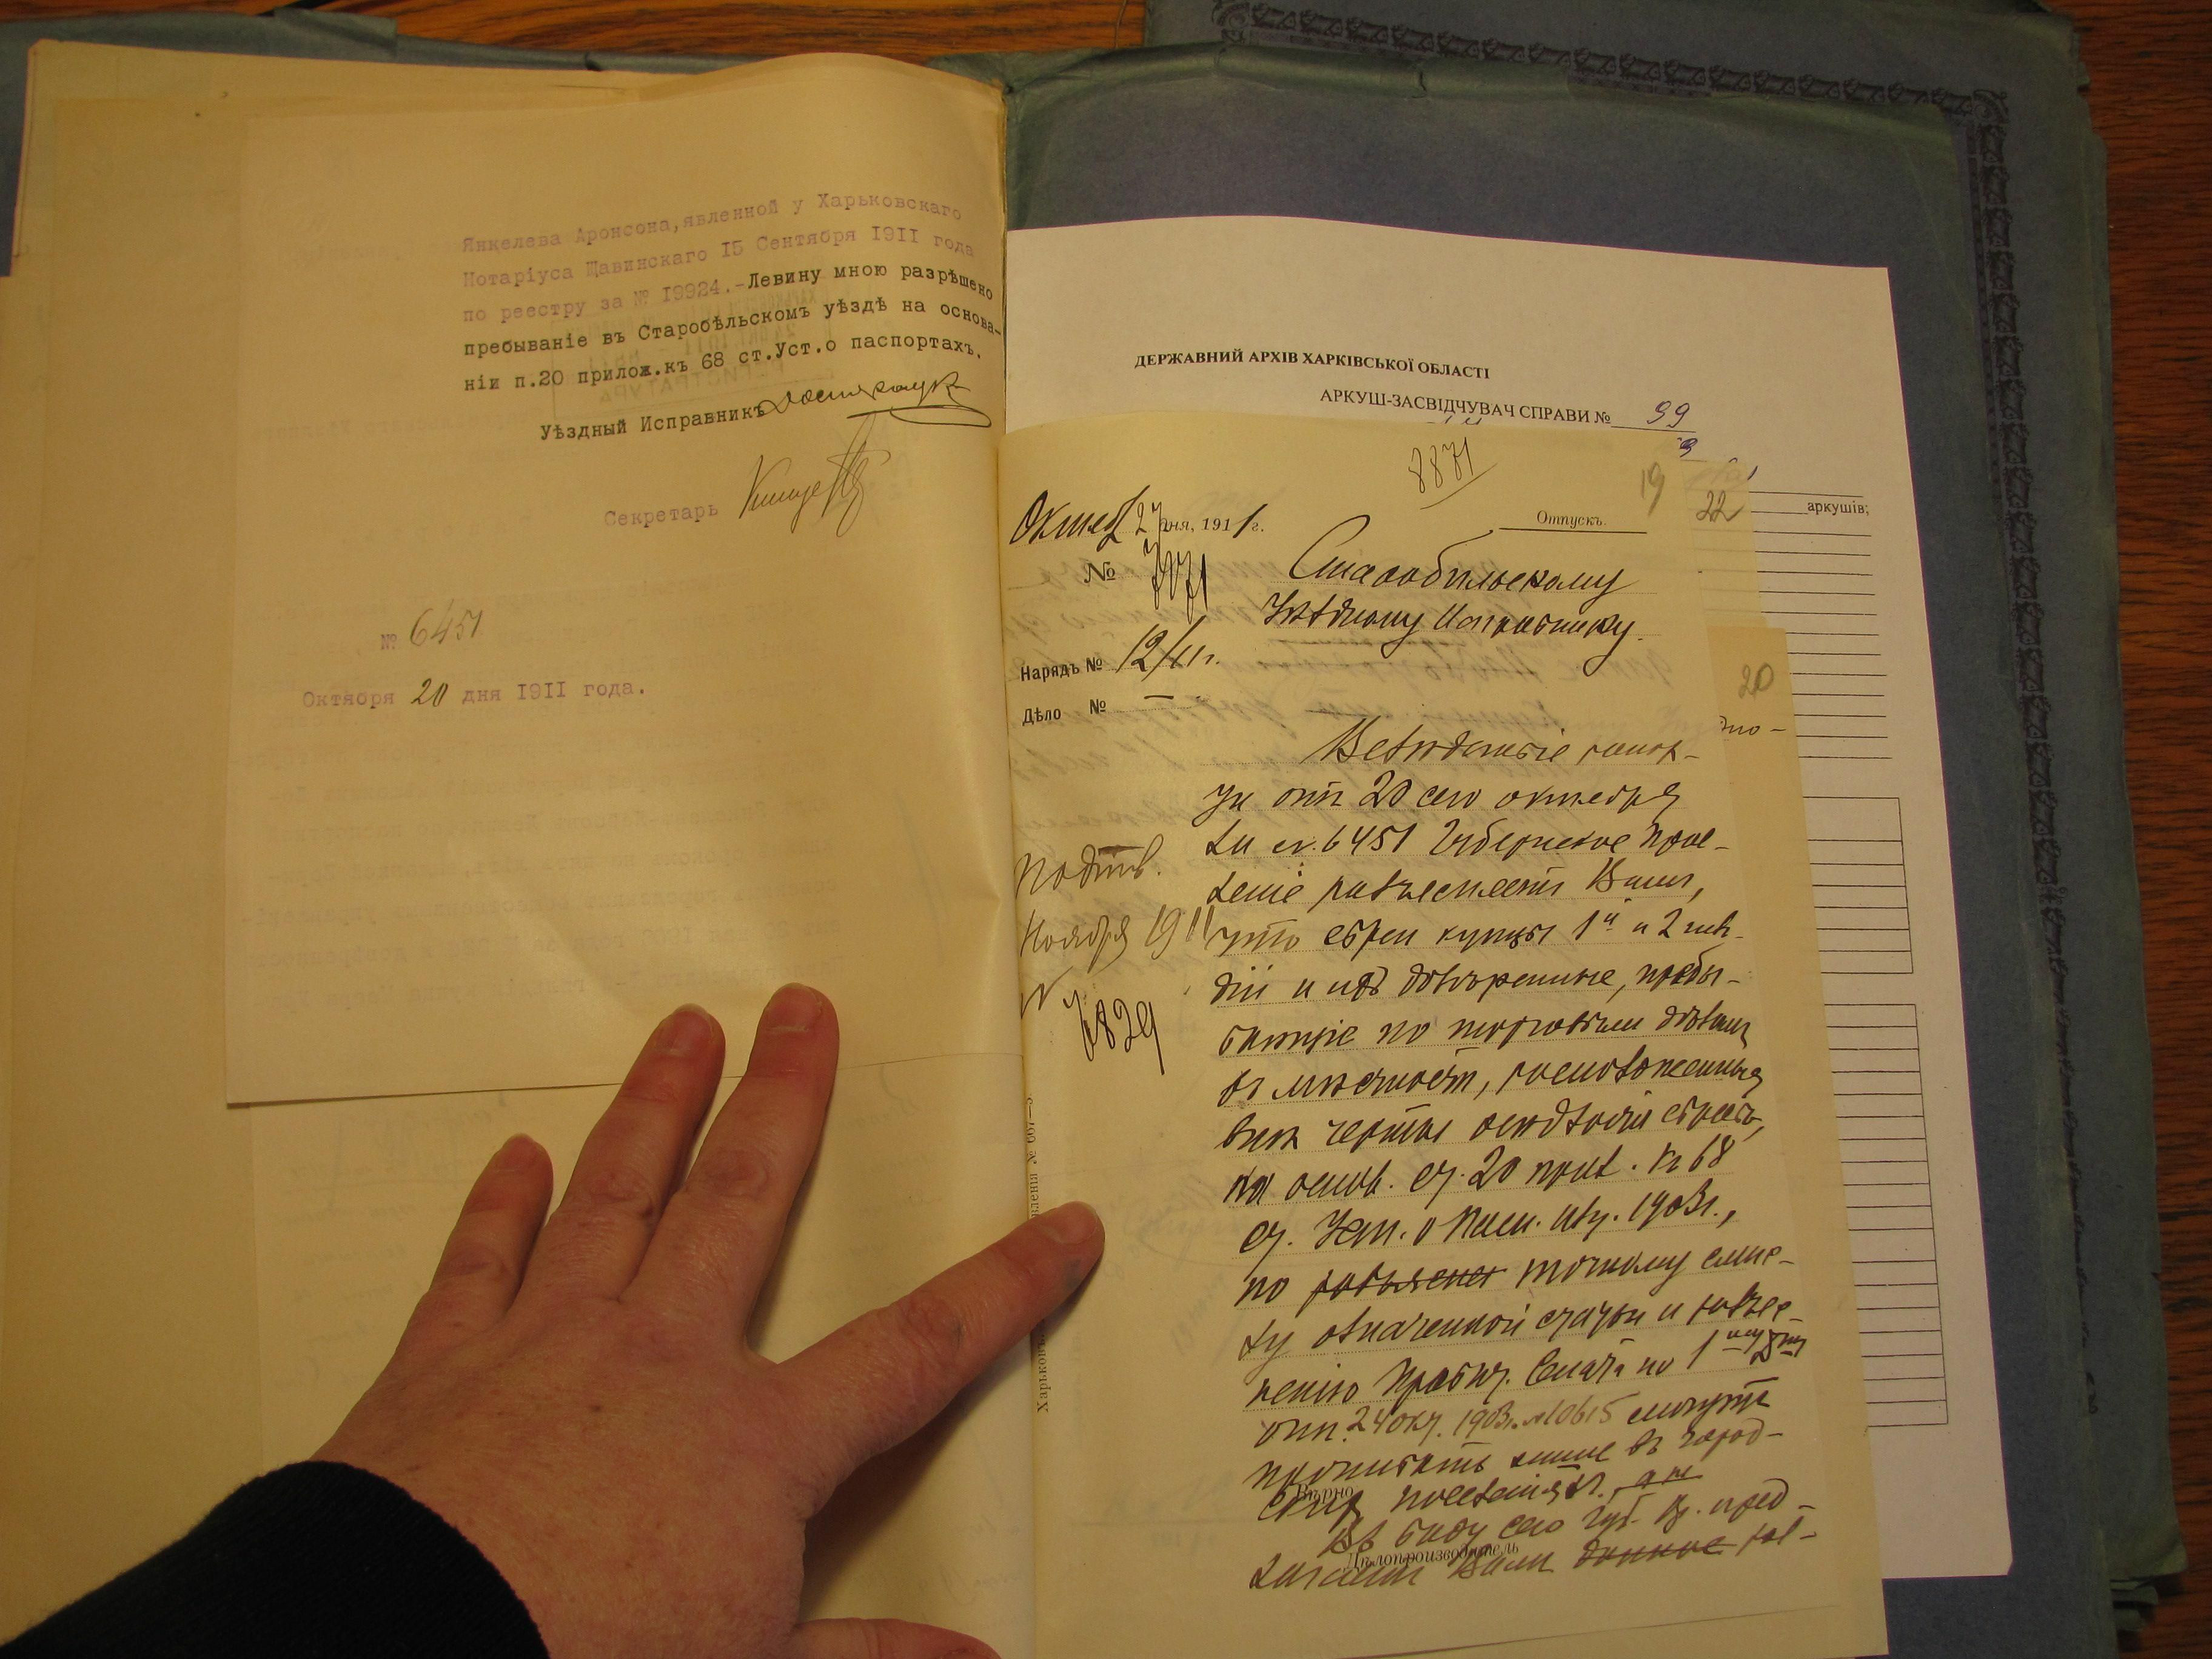 Янкелева Аронсона, явленной у Харьковскаго
Нотаріуса Щавинскаго 15 Сентября 1911 года
по реестру за № 19924.-Левину мною разрѣшено
пребываніе въ Старобѣльскомъ уѣздѣ на основа-
ніи п.20 прилож.къ 68 ст.Уст.о паспортахъ.
Уѣздный Исправникъ
Секретарь
№ 6451
Октября 20 дня 1911 года.
ДЕРЖАВНИЙ АРХІВ ХАРКІВСЬКОЇ ОБЛАСТІ
АРКУШ-ЗАСВІДЧУВАЧ СПРАВИ № 99
аркушів;
8871
19
22
20
Октяб 27 дня, 1911 г.
Отпускъ.
№ 7071
Старобѣльскому
Уѣздному Исправнику.
Нарядъ № 12/11 г.
Дѣло № —
Вслѣдствіе рапор-
та отъ 20 сего октября
за № 6451 Губернское Прав-
леніе разъясняетъ Вамъ,
что евреи купцы 1й и 2 гиль-
діи и ихъ довѣренные, пребы-
вающіе по торговымъ дѣламъ
въ мѣстности, расположенныя
внѣ черты осѣдлости евреевъ,
на основ. ст. 20 прил. къ 68
ст. Уст. о Пасп. изд. 1903 г.,
по разъясне точному смыс-
лу означенной статьи и разъяс-
ненію Правит. Сената по 1му Д-ту
отъ 24 окт. 1903 г. № 10615 могутъ
проживать лишь въ город-
скихъ поселеніяхъ,
Въ виду сего Губ. Пр. пред-
лагаетъ Вамъ данное раз-
Подтв.
Ноября 1911
№ 7829
Вѣрно
Дѣлопроизводитель